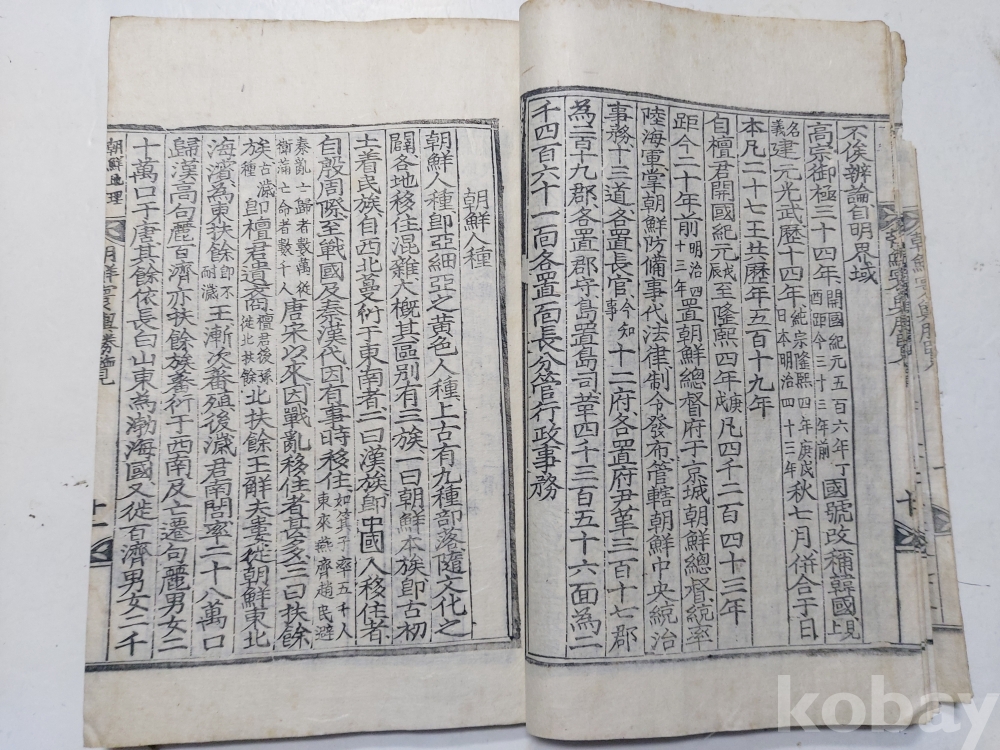 不俟辨論自明界域
高宗御極三十四年開國紀元五百六年丁酉距今三十三年前國號改稱韓國上晛
名義建元光武歷十四年純宗隆熙四年庚戌日本明治四十三年秋七月併合于日
本凡二十七王共歷年五百十九年
自檀君開國紀元戊辰至隆熙四年庚戌凡四千二百四十三年
距今二十年前明治四十三年置朝鮮總督府于京城朝鮮總督統率
陸海軍掌朝鮮防備事代法律制令發布管轄朝鮮中央統治
事務十三道各置長官今知事十二府各置府尹革三百十七郡
為二百十九郡各置郡守島置島司革四千三百五十六面為二
千四百六十一面各置面長分管行政事務
朝鮮人種
朝鮮人種卽亞細亞之黃色人種上古有九種部落隨文化之
闢各地移住混雜大槪其區別有三族一曰朝鮮本族卽古初
土着民族自西北蔓衍于東南者二曰漢族卽中國人移住者
自殷周際至戰國及秦漢代因有事時移住如箕子率五千人東來燕齊趙民避
秦亂士歸者數萬從衛滿亡命者數千人唐宋以來因戰亂移住者甚多三曰扶餘
族古濊種卽檀君遺裔檀君後孫徙北扶餘北扶餘王解夫婁徙朝鮮東北
海濱為東扶餘卽不耐濊王漸次蕃殖後濊君南閭率二十八萬口
歸漢高句麗百濟亦扶餘族蔓衍于西南及亡遷句麗男女二
十萬口于唐其餘依長白山東為渤海國又徙百濟男女二千
朝鮮地理
十一
kobay